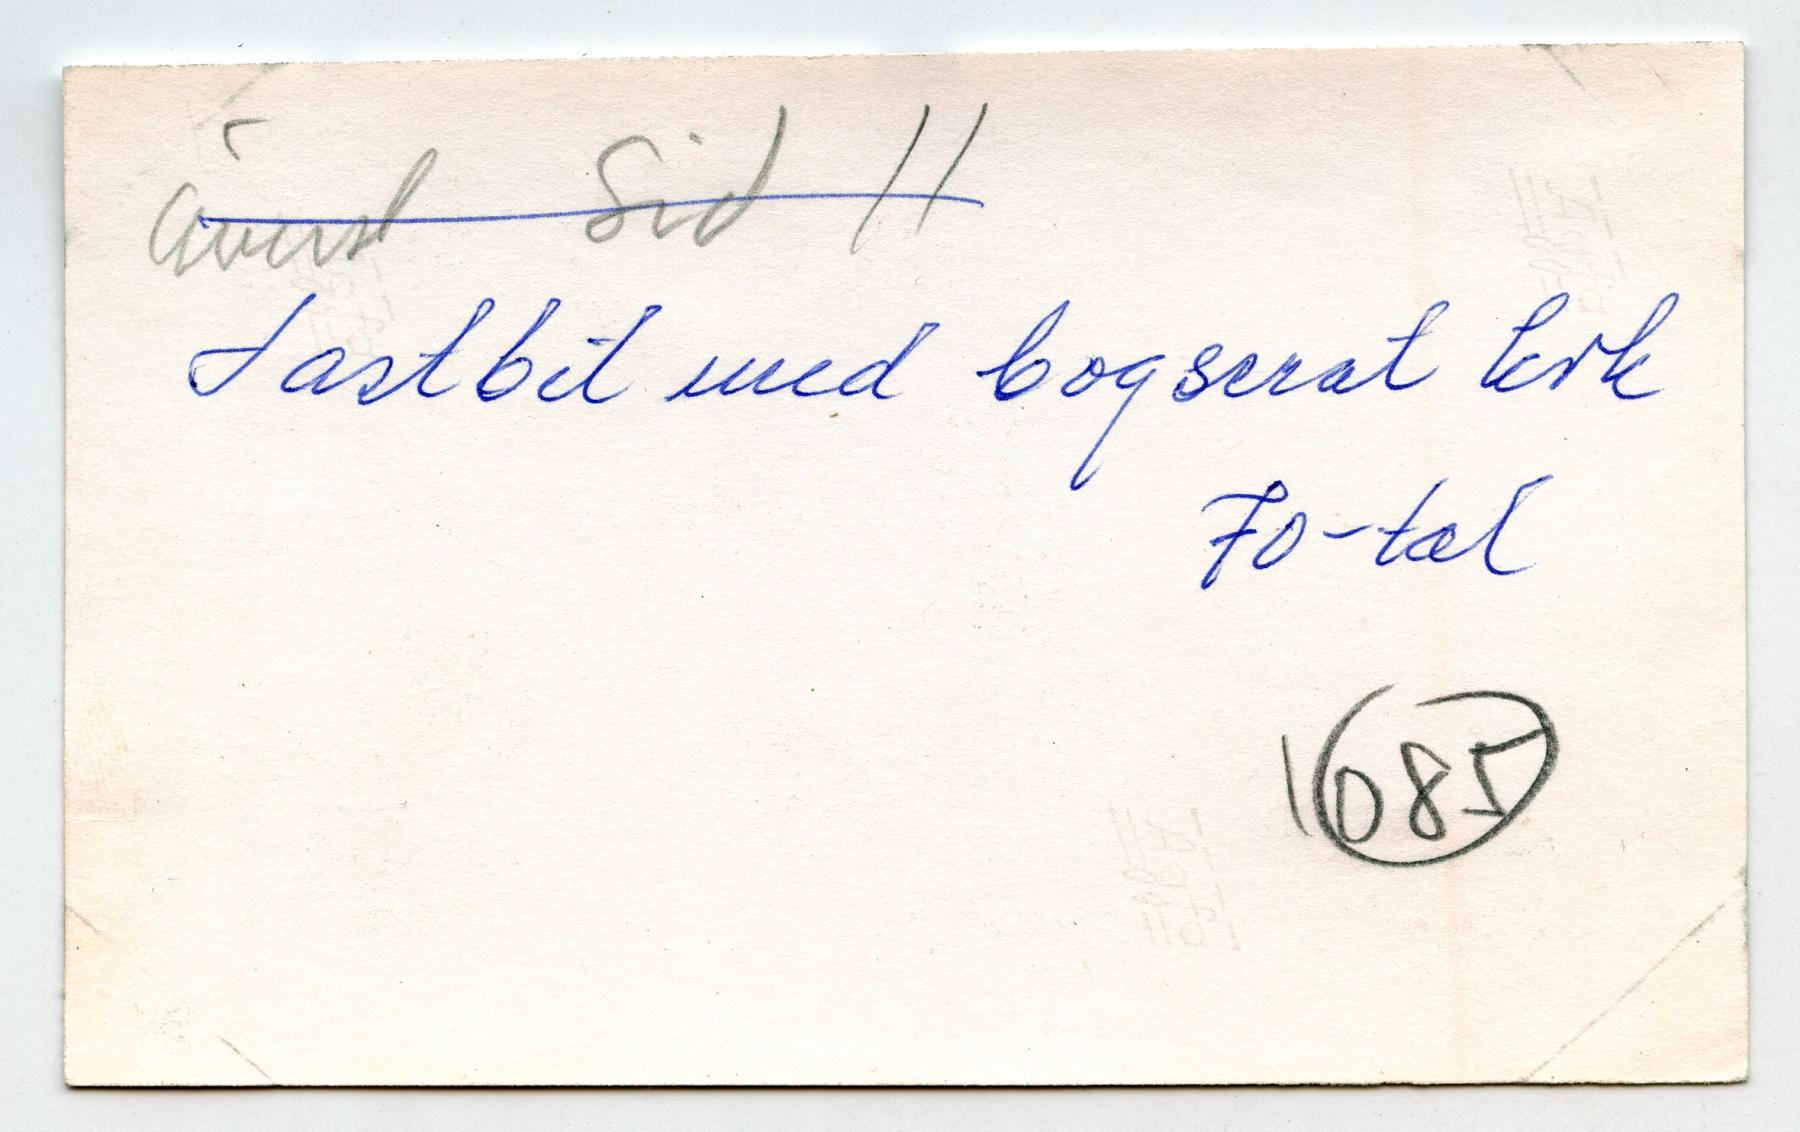 överst Sid 11
Lastbil med bogserat krk
70-tal
1085